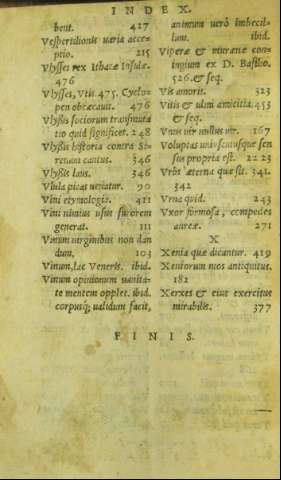 INDEX.
bent. 427
Vespertilionis uaria acce-
ptio. 215
Vlysses rex Ithacæ Insulæ.
476
Vlysses, Vtis 475. Cyclo-
pen obcæcauit. 476
Vlyssis sociorum transmuta
tio quid significet. 248
Vlyssis historia contra Si-
renum cantus. 346
Vlyssis laus. 346
Vlula picas uexatur. 90
Vini etymologia. 411
Vini nimius usus furorem
generat. 111
Vinum uirginibus non dan
dum. 103
Vinum, lac Veneris. ibid.
Vinum opinionum uanita-
te mentem opplet. ibid.
corpusq; ualidum facit,
animum uerò imbecil-
lum. ibid.
Viperæ & murænæ con-
iugium ex D. Basilio.
526. & seq.
Vis amoris. 323
Vitis & ulmi amicitia. 453
& seq.
Vnus uir nullus uir. 167
Voluptas uniuscuiusque sen
sus propria est. 22 23
Vrbs æterna quæ sit. 341.
342
Vrna quid. 243
Vxor formosa, compedes
aureæ. 271
X
Xenia quæ dicantur. 419
Xeniorum mos antiquitus.
182
Xerxes & eius exercitus
mirabilis. 377
FINIS.